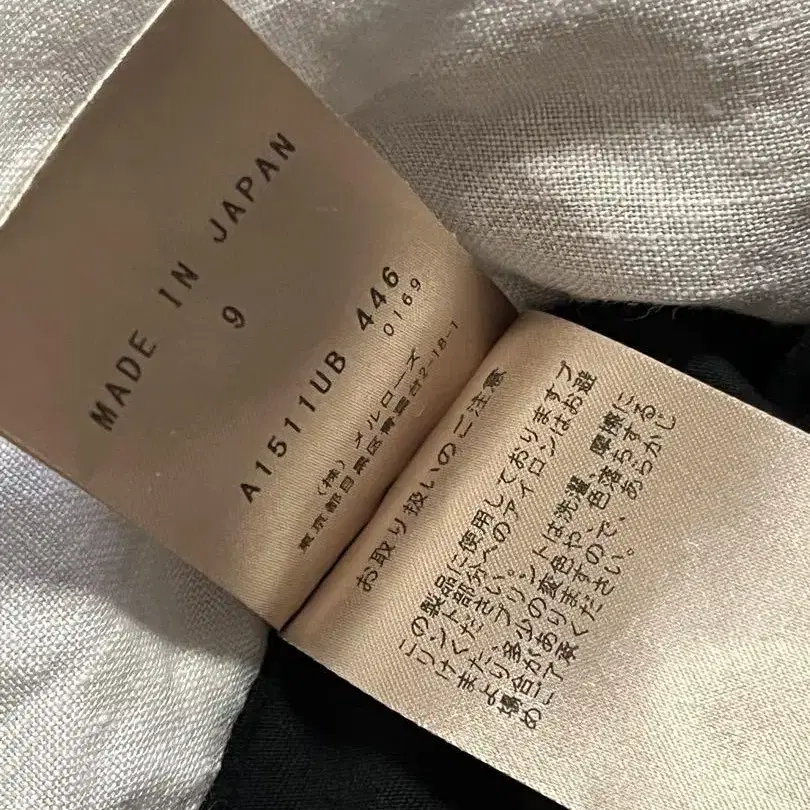 MADE IN JAPAN
9
A1511UB 446
0169
(株) メルローズ
東京都目黒区青葉台2-18-1
お取り扱いのご注意
この製品に使用しておりますプ
リント部分へのアイロンはお避
けください。
プリントは洗濯、摩擦に
より多少の変色や、色落ちする
場合がありますので、あらかじ
めご了承ください。